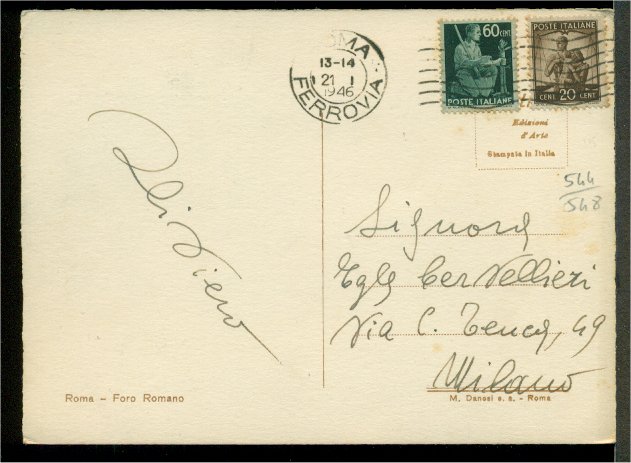 ROMA
13-14
21 I
1946
FERROVIA
60 CENT.
POSTE ITALIANE
POSTE ITALIANE
CENT. 20 CENT
Edizioni
d'Arte
Stampata in Italia
544
548
Signora
Egle Cervellieri
Via C. Tenca, 49
Milano
Roma - Foro Romano
M. Danesi s. a. - Roma